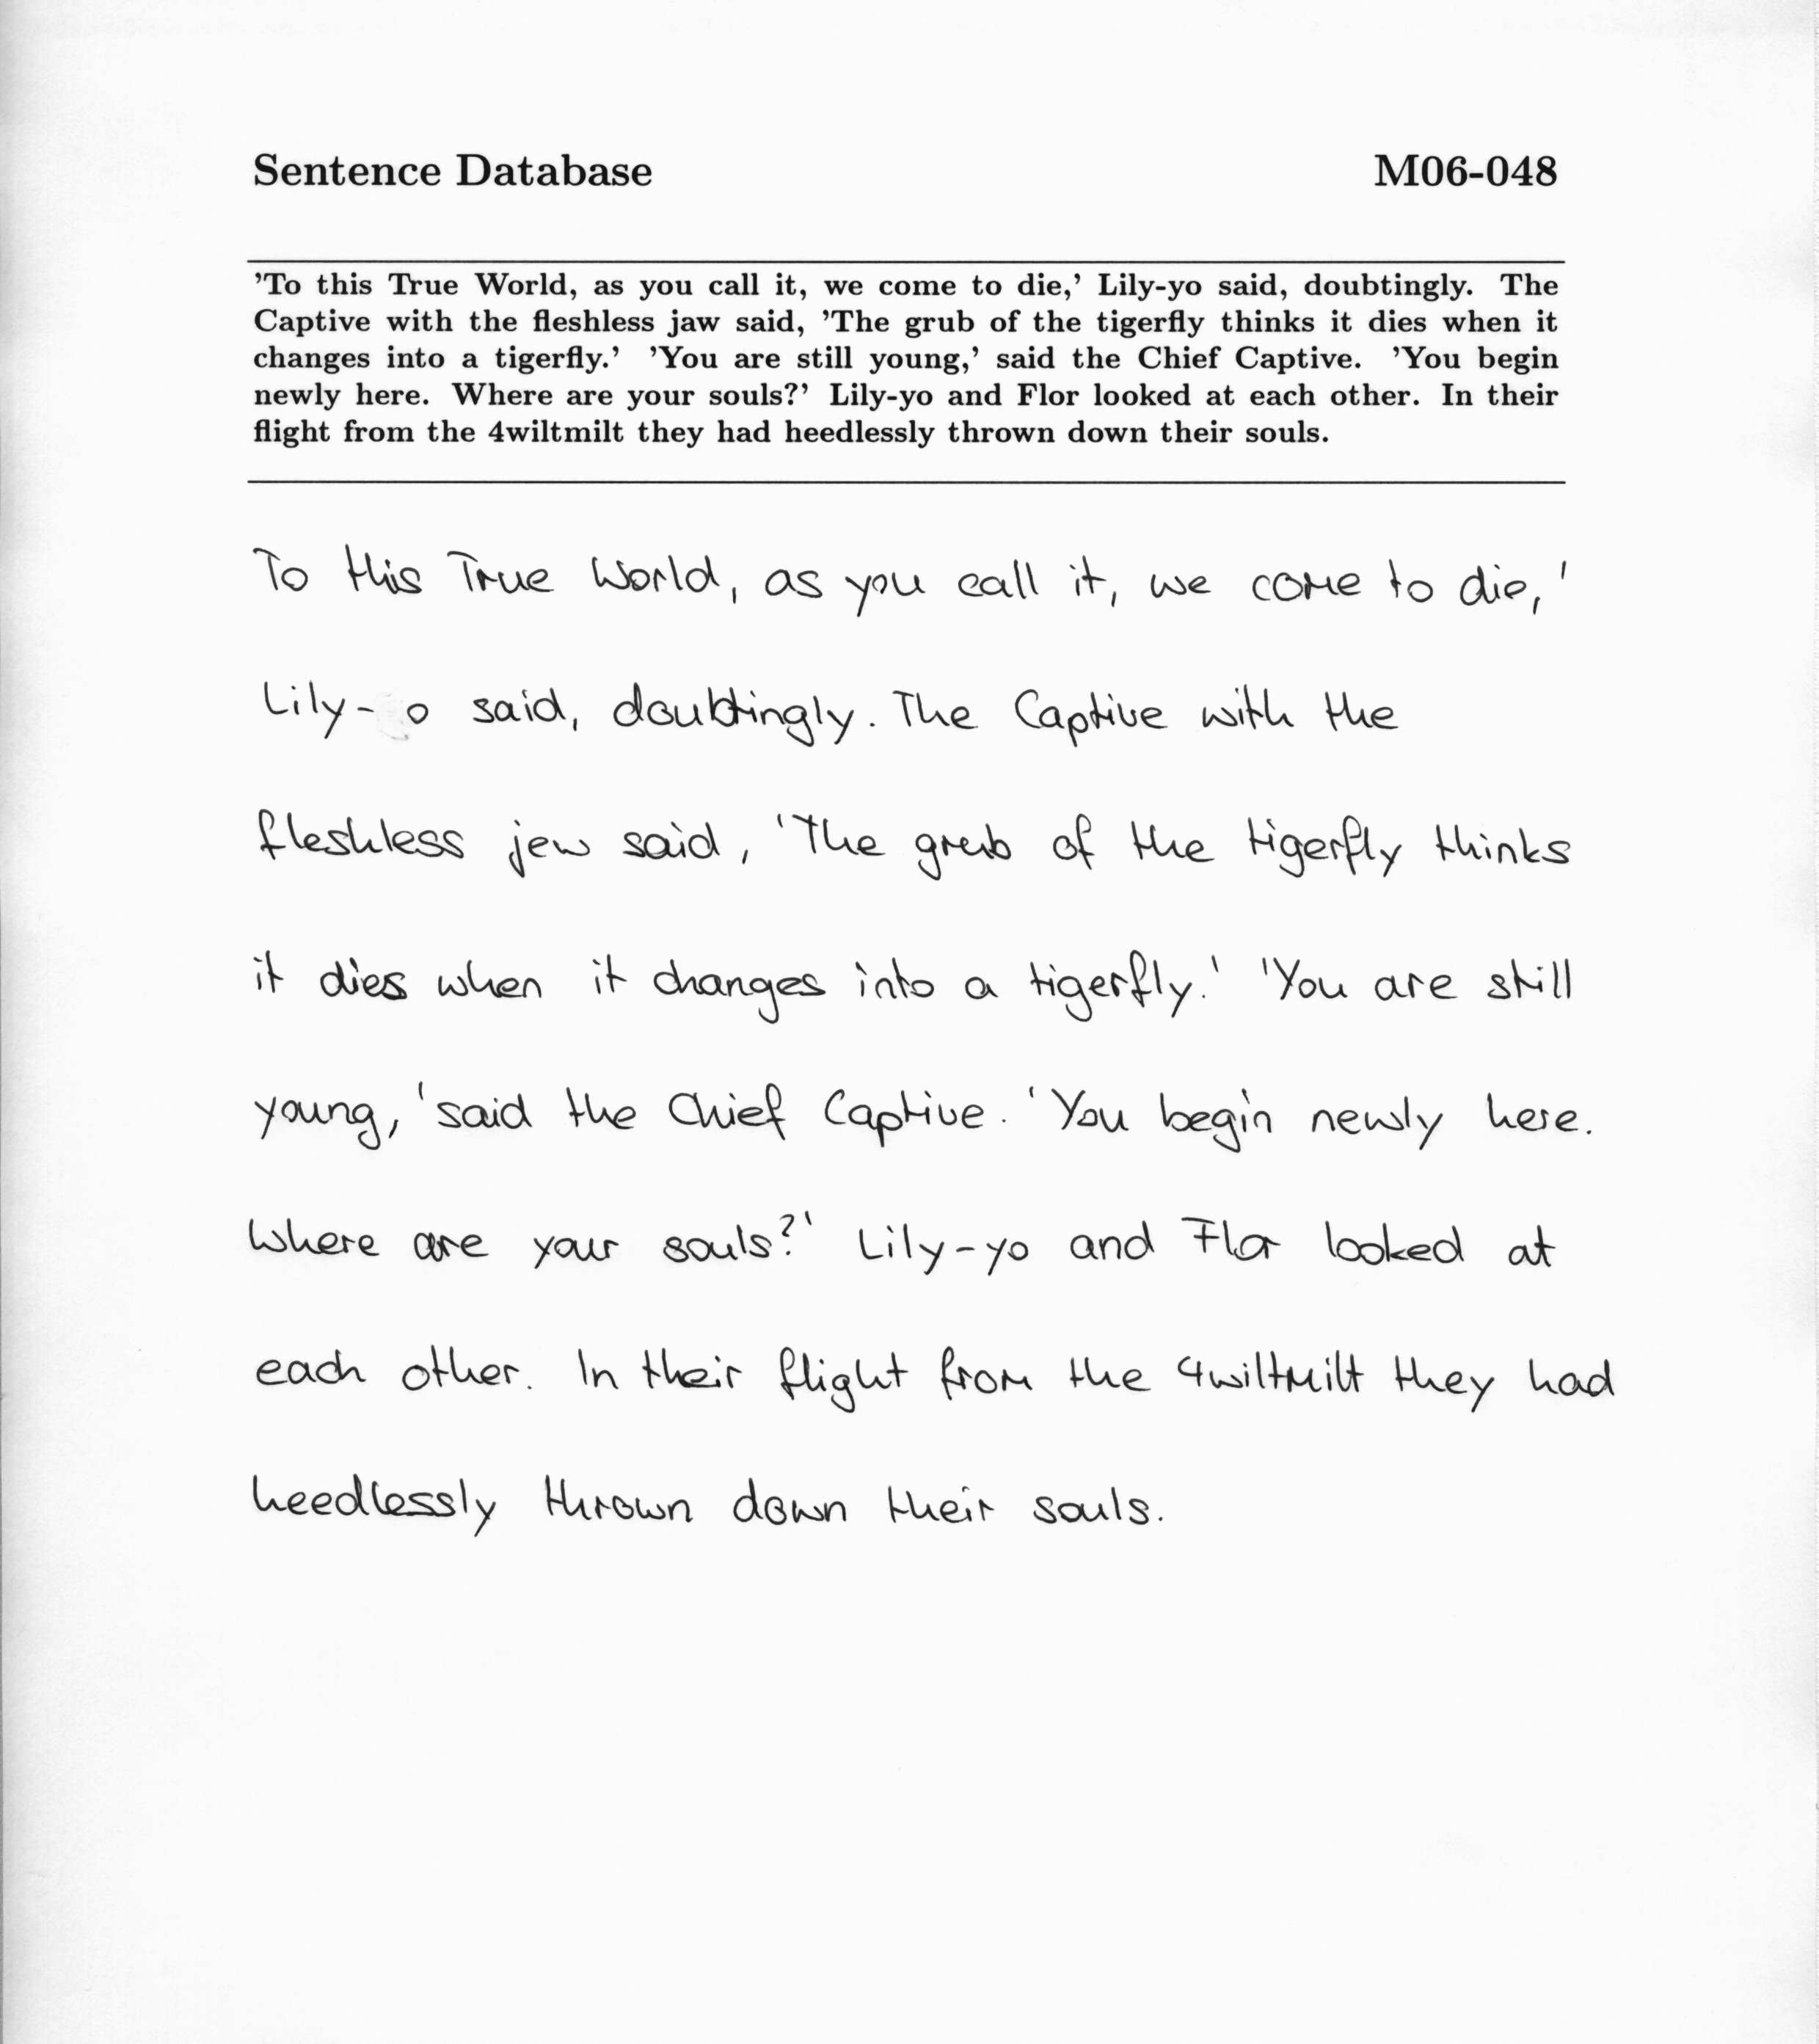 Sentence Database M06-048
'To this True World, as you call it, we come to die,' Lily-yo said, doubtingly. The
Captive with the fleshless jaw said, 'The grub of the tigerfly thinks it dies when it
changes into a tigerfly.' 'You are still young,' said the Chief Captive. 'You begin
newly here. Where are your souls?' Lily-yo and Flor looked at each other. In their
flight from the 4wiltmilt they had heedlessly thrown down their souls.
To this True World, as you call it, we come to die,'
Lily- o said, doubtingly. The Captive with the
fleshless jew said, 'The grub of the tigerfly thinks
it dies when it changes into a tigerfly.' 'You are still
young,' said the Chief Captive. 'You begin newly here.
Where are your souls?' Lily-yo and Flor looked at
each other. In their flight from the 4wiltmilt they had
heedlessly thrown down their souls.